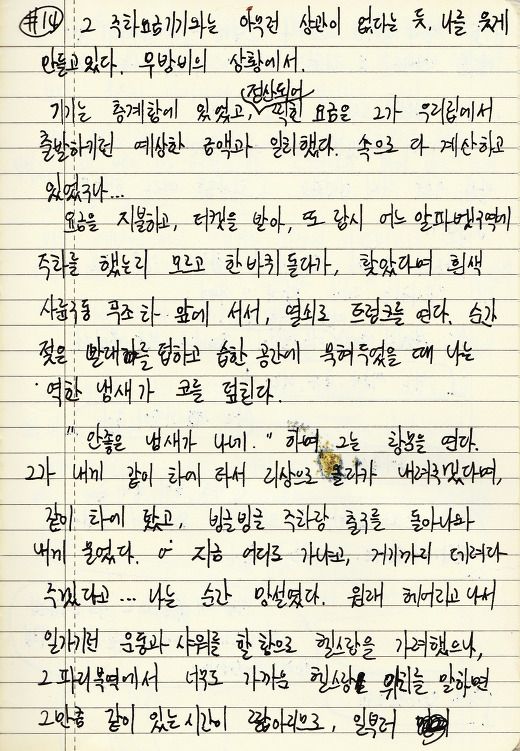 #14 그 주차요금기기와는 아무런 상관이 없다는 듯, 나를 웃게
만들고 있다. 무방비의 상황에서.
정산되어
기기는 통계함에 있었고, 찍힌 요금은 그가 우리집에서
출발하기전 예상한 금액과 일치했다. 속으로 다 계산하고
있었구나...
요금을 지불하고, 티켓을 받아, 또 잠시 어느 알파벳구역에
주차를 했는지 모르고 한바퀴 돌다가, 찾았다며 흰색
사륜구동 차 앞에 서서, 열쇠로 트렁크를 연다. 순간
젖은 빨래를 접하고 습한 공간에 묵혀두었을 때 나는
역한 냄새가 코를 덮친다.
"안좋은 냄새가 나네." 하며, 그는 창문을 연다.
그가 내게 같이 차에 타서 지상으로 올라가 내려주겠다며,
같이 차에 탔고, 빙글빙글 주차장 출구를 돌아나와
내게 물었다. 지금 어디로 가냐고, 거기까지 데려다
주겠다고... 나는 순간 망설였다. 원래 헤어지고 나서
일가기전 운동과 샤워를 할 참으로 헬스장을 가려했으나,
그 파리북역에서 너무도 가까운 헬스장 위치를 말하면
그만큼 같이 있는 시간이 짧아지므로, 일부러